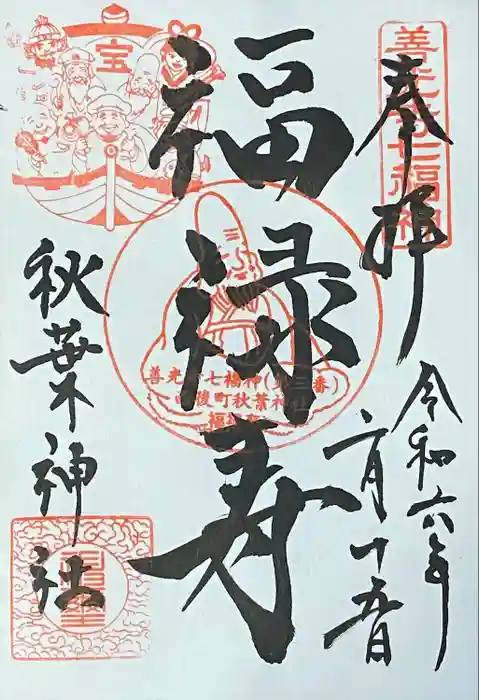 善光寺七福神
奉拝
令和六年
二月十五日
宝
福禄寿
善光寺七福神(第三番)
西後町秋葉神社
福禄寿
秋葉神社